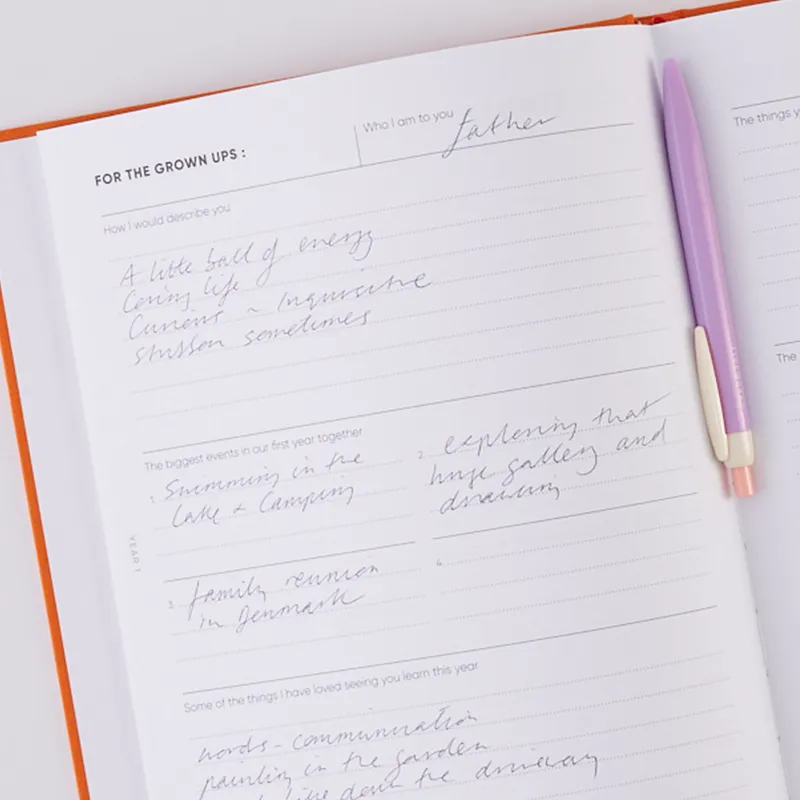 FOR THE GROWN UPS :
Who I am to you father
How I would describe you
A little ball of energy
Loving life
Curious ~ Inquisitive
stubbon sometimes
The biggest events in our first year together
1. Swimming in the
Lake + Camping
2. exploring that
huge gallery and
drawing
3. family reunion
in Denmark
4.
YEAR 1
Some of the things I have loved seeing you learn this year
words - communication
painting in the garden
bike down the driveway
The things y
The